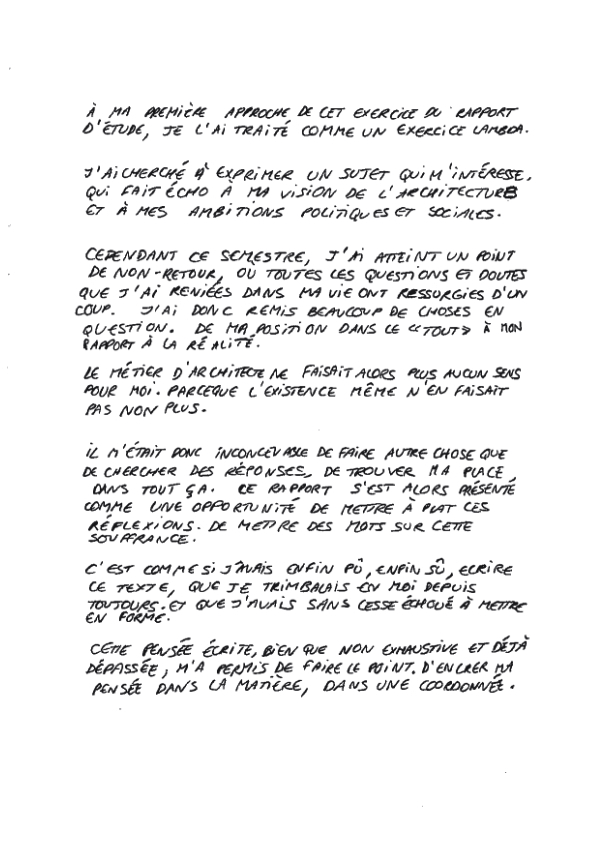 À MA PREMIÈRE APPROCHE DE CET EXERCICE DU RAPPORT
D'ÉTUDE, JE L'AI TRAITÉ COMME UN EXERCICE LAMBDA.
J'AI CHERCHÉ À EXPRIMER UN SUJET QUI M'INTÉRESSE,
QUI FAIT ÉCHO À MA VISION DE L'ARCHITECTURE
ET À MES AMBITIONS POLITIQUES ET SOCIALES.
CEPENDANT CE SEMESTRE, J'AI ATTEINT UN POINT
DE NON-RETOUR, OÙ TOUTES LES QUESTIONS ET DOUTES
QUE J'AI RENIÉES DANS MA VIE ONT RESSURGIES D'UN
COUP. J'AI DONC REMIS BEAUCOUP DE CHOSES EN
QUESTION. DE MA POSITION DANS CE «TOUT» À MON
RAPPORT À LA RÉALITÉ.
LE MÉTIER D'ARCHITECTE NE FAISAIT ALORS PLUS AUCUN SENS
POUR MOI. PARCEQUE L'EXISTENCE MÊME N'EN FAISAIT
PAS NON PLUS.
IL M'ÉTAIT DONC INCONCEVABLE DE FAIRE AUTRE CHOSE QUE
DE CHERCHER DES RÉPONSES, DE TROUVER MA PLACE
DANS TOUT ÇA. CE RAPPORT S'EST ALORS PRÉSENTÉ
COMME UNE OPPORTUNITÉ DE METTRE À PLAT CES
RÉFLEXIONS. DE METTRE DES MOTS SUR CETTE
SOUFFRANCE.
C'EST COMME SI J'AVAIS ENFIN PÛ, ENFIN SÛ, ECRIRE
CE TEXTE, QUE JE TRIMBALAIS EN MOI DEPUIS
TOUJOURS. ET QUE J'AVAIS SANS CESSE ÉCHOUÉ À METTRE
EN FORME.
CETTE PENSÉE ÉCRITE, BIEN QUE NON EXHAUSTIVE ET DÉJÀ
DÉPASSÉE, M'A PERMIS DE FAIRE LE POINT. D'ENCRER MA
PENSÉE DANS LA MATIÈRE, DANS UNE COORDONNÉE.